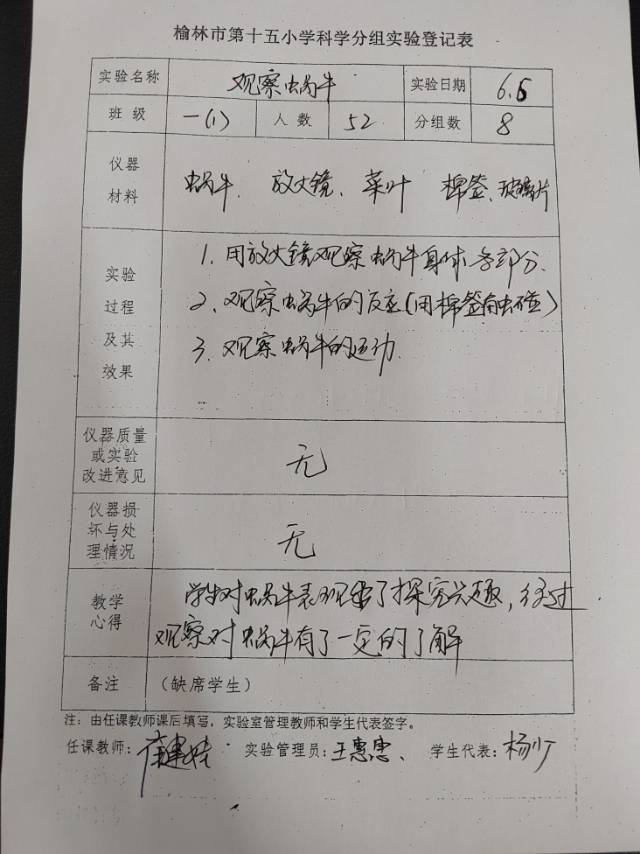 榆林市第十五小学科学分组实验登记表
实验名称 观察蜗牛 实验日期 6.5
班 级 一(1) 人 数 52 分组数 8
仪器
材料
蜗牛、放大镜、菜叶 棉签、玻璃片
实验
过程
及其
效果
1. 用放大镜观察蜗牛身体各部分.
2. 观察蜗牛的反应(用棉签触碰)
3. 观察蜗牛的运动.
仪器质量
或实验
改进意见
无
仪器损
坏与处
理情况
无
教学
心得
学生对蜗牛表现出了探究兴趣,经过
观察对蜗牛有了一定的了解
备注 (缺席学生)
注: 由任课教师课后填写, 实验室管理教师和学生代表签字。
任课教师: 实验管理员: 王惠忠、 学生代表: 杨